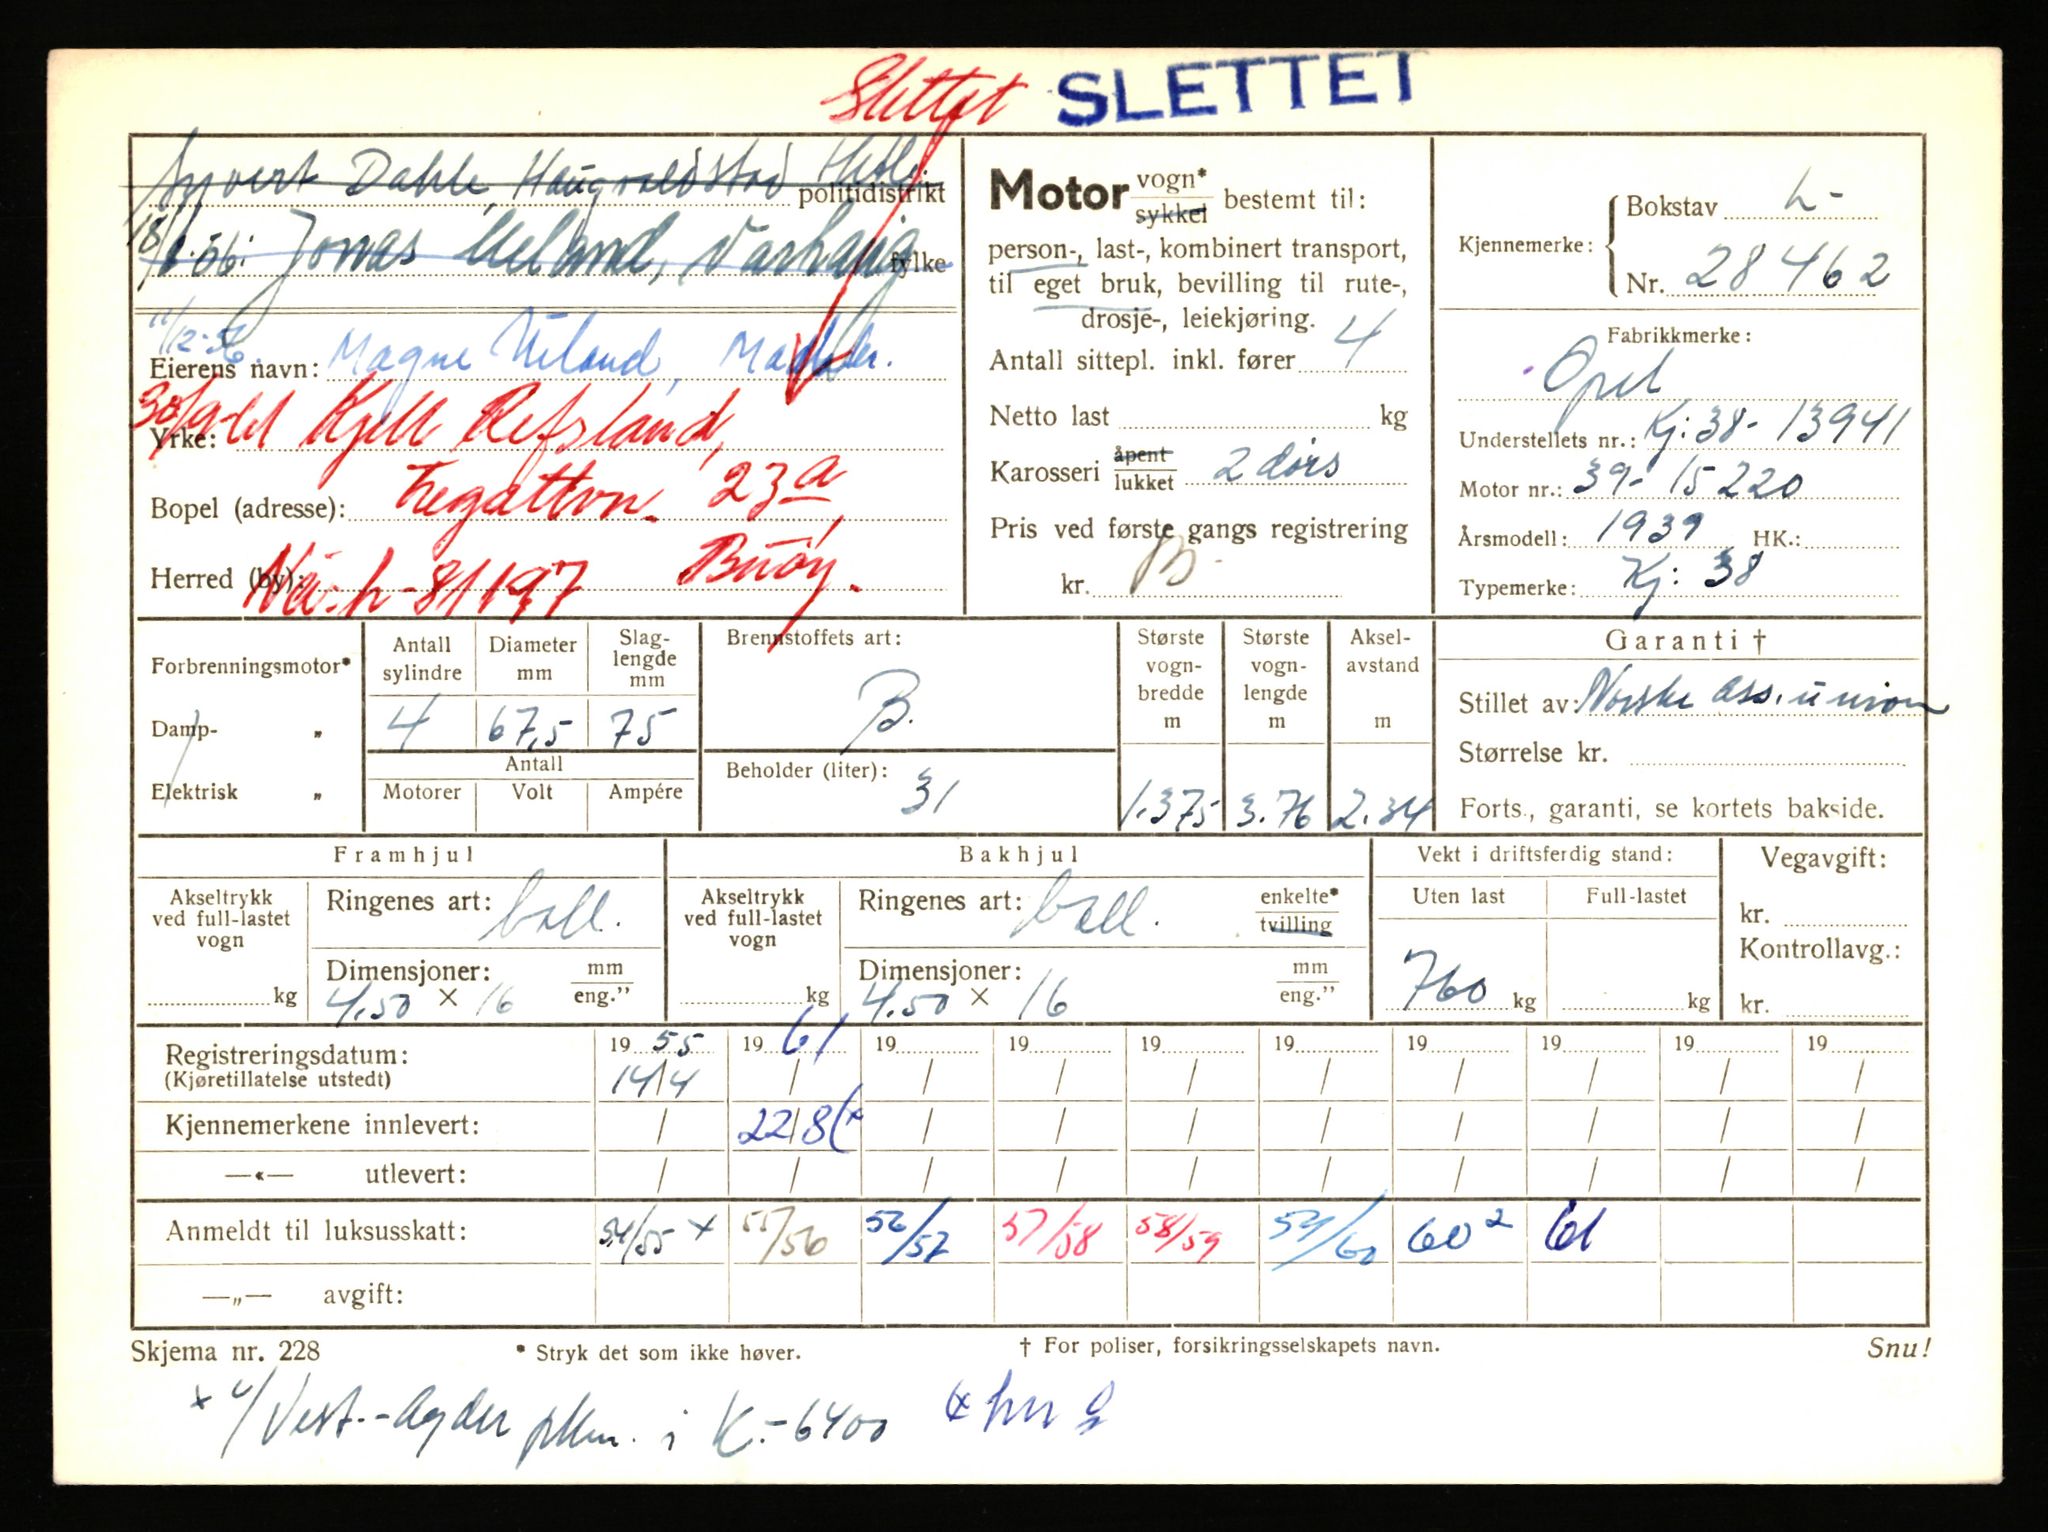 Slettet SLETTET
Syvert Dahle, Haugvaldstad
politidistrikt
18/6-56: Jonas Ueland, Varhaug
fylke
11/12-56
Eierens navn: Magne Ueland, Madla
30/9-61 Kjell Refsland,
Yrke:
Bopel (adresse): Fregattvn. 23a
Buøy.
Herred (by): Nå: L-81197
Motor vogn* sykkel bestemt til:
person-, last-, kombinert transport,
til eget bruk, bevilling til rute-,
drosje-, leiekjøring.
Antall sittepl. inkl. fører 4
Netto last kg
Karosseri åpent lukket 2 dørs
Pris ved første gangs registrering
kr. B-
Kjennemerke: Bokstav L-
Nr. 28462
Fabrikkmerke:
Opel
Understellets nr.: Kj: 38-13941
Motor nr.: 39-15220
Årsmodell: 1939 HK.:
Typemerke: Kj: 38
Forbrenningsmotor*
Damp- „
Elektrisk „
Antall sylindre Diameter mm Slag-lengde mm
4 67,5 75
Antall
Motorer Volt Ampére
Brennstoffets art:
B.
Beholder (liter): 31
Største vogn-bredde m Største vogn-lengde m Aksel-avstand m
1.375 3.76 2.34
Garanti †
Stillet av: Norske ass. union
Størrelse kr.
Forts., garanti, se kortets bakside.
Framhjul
Akseltrykk ved full-lastet vogn
kg
Ringenes art: ball.
Dimensjoner: mm eng.”
4.50 × 16
Bakhjul
Akseltrykk ved full-lastet vogn
kg
Ringenes art: ball. enkelte* tvilling
Dimensjoner: mm eng.”
4.50 × 16
Vekt i driftsferdig stand:
Uten last Full-lastet
760 kg kg
Vegavgift:
kr.
Kontrollavg.:
kr.
Registreringsdatum: 19 55 19 61 19 19 19 19 19 19 19 19
(Kjøretillatelse utstedt) 14/4 / / / / / / / / /
Kjennemerkene innlevert: / 22/8 / / / / / / / /
—«— utlevert: / / / / / / / / / /
Anmeldt til luksusskatt: 54/55 x 55/56 56/57 57/58 58/59 59/60 60² 61
—„— avgift:
Skjema nr. 228 * Stryk det som ikke høver. † For poliser, forsikringsselskapets navn. Snu!
x Vest-Agder i K-6400